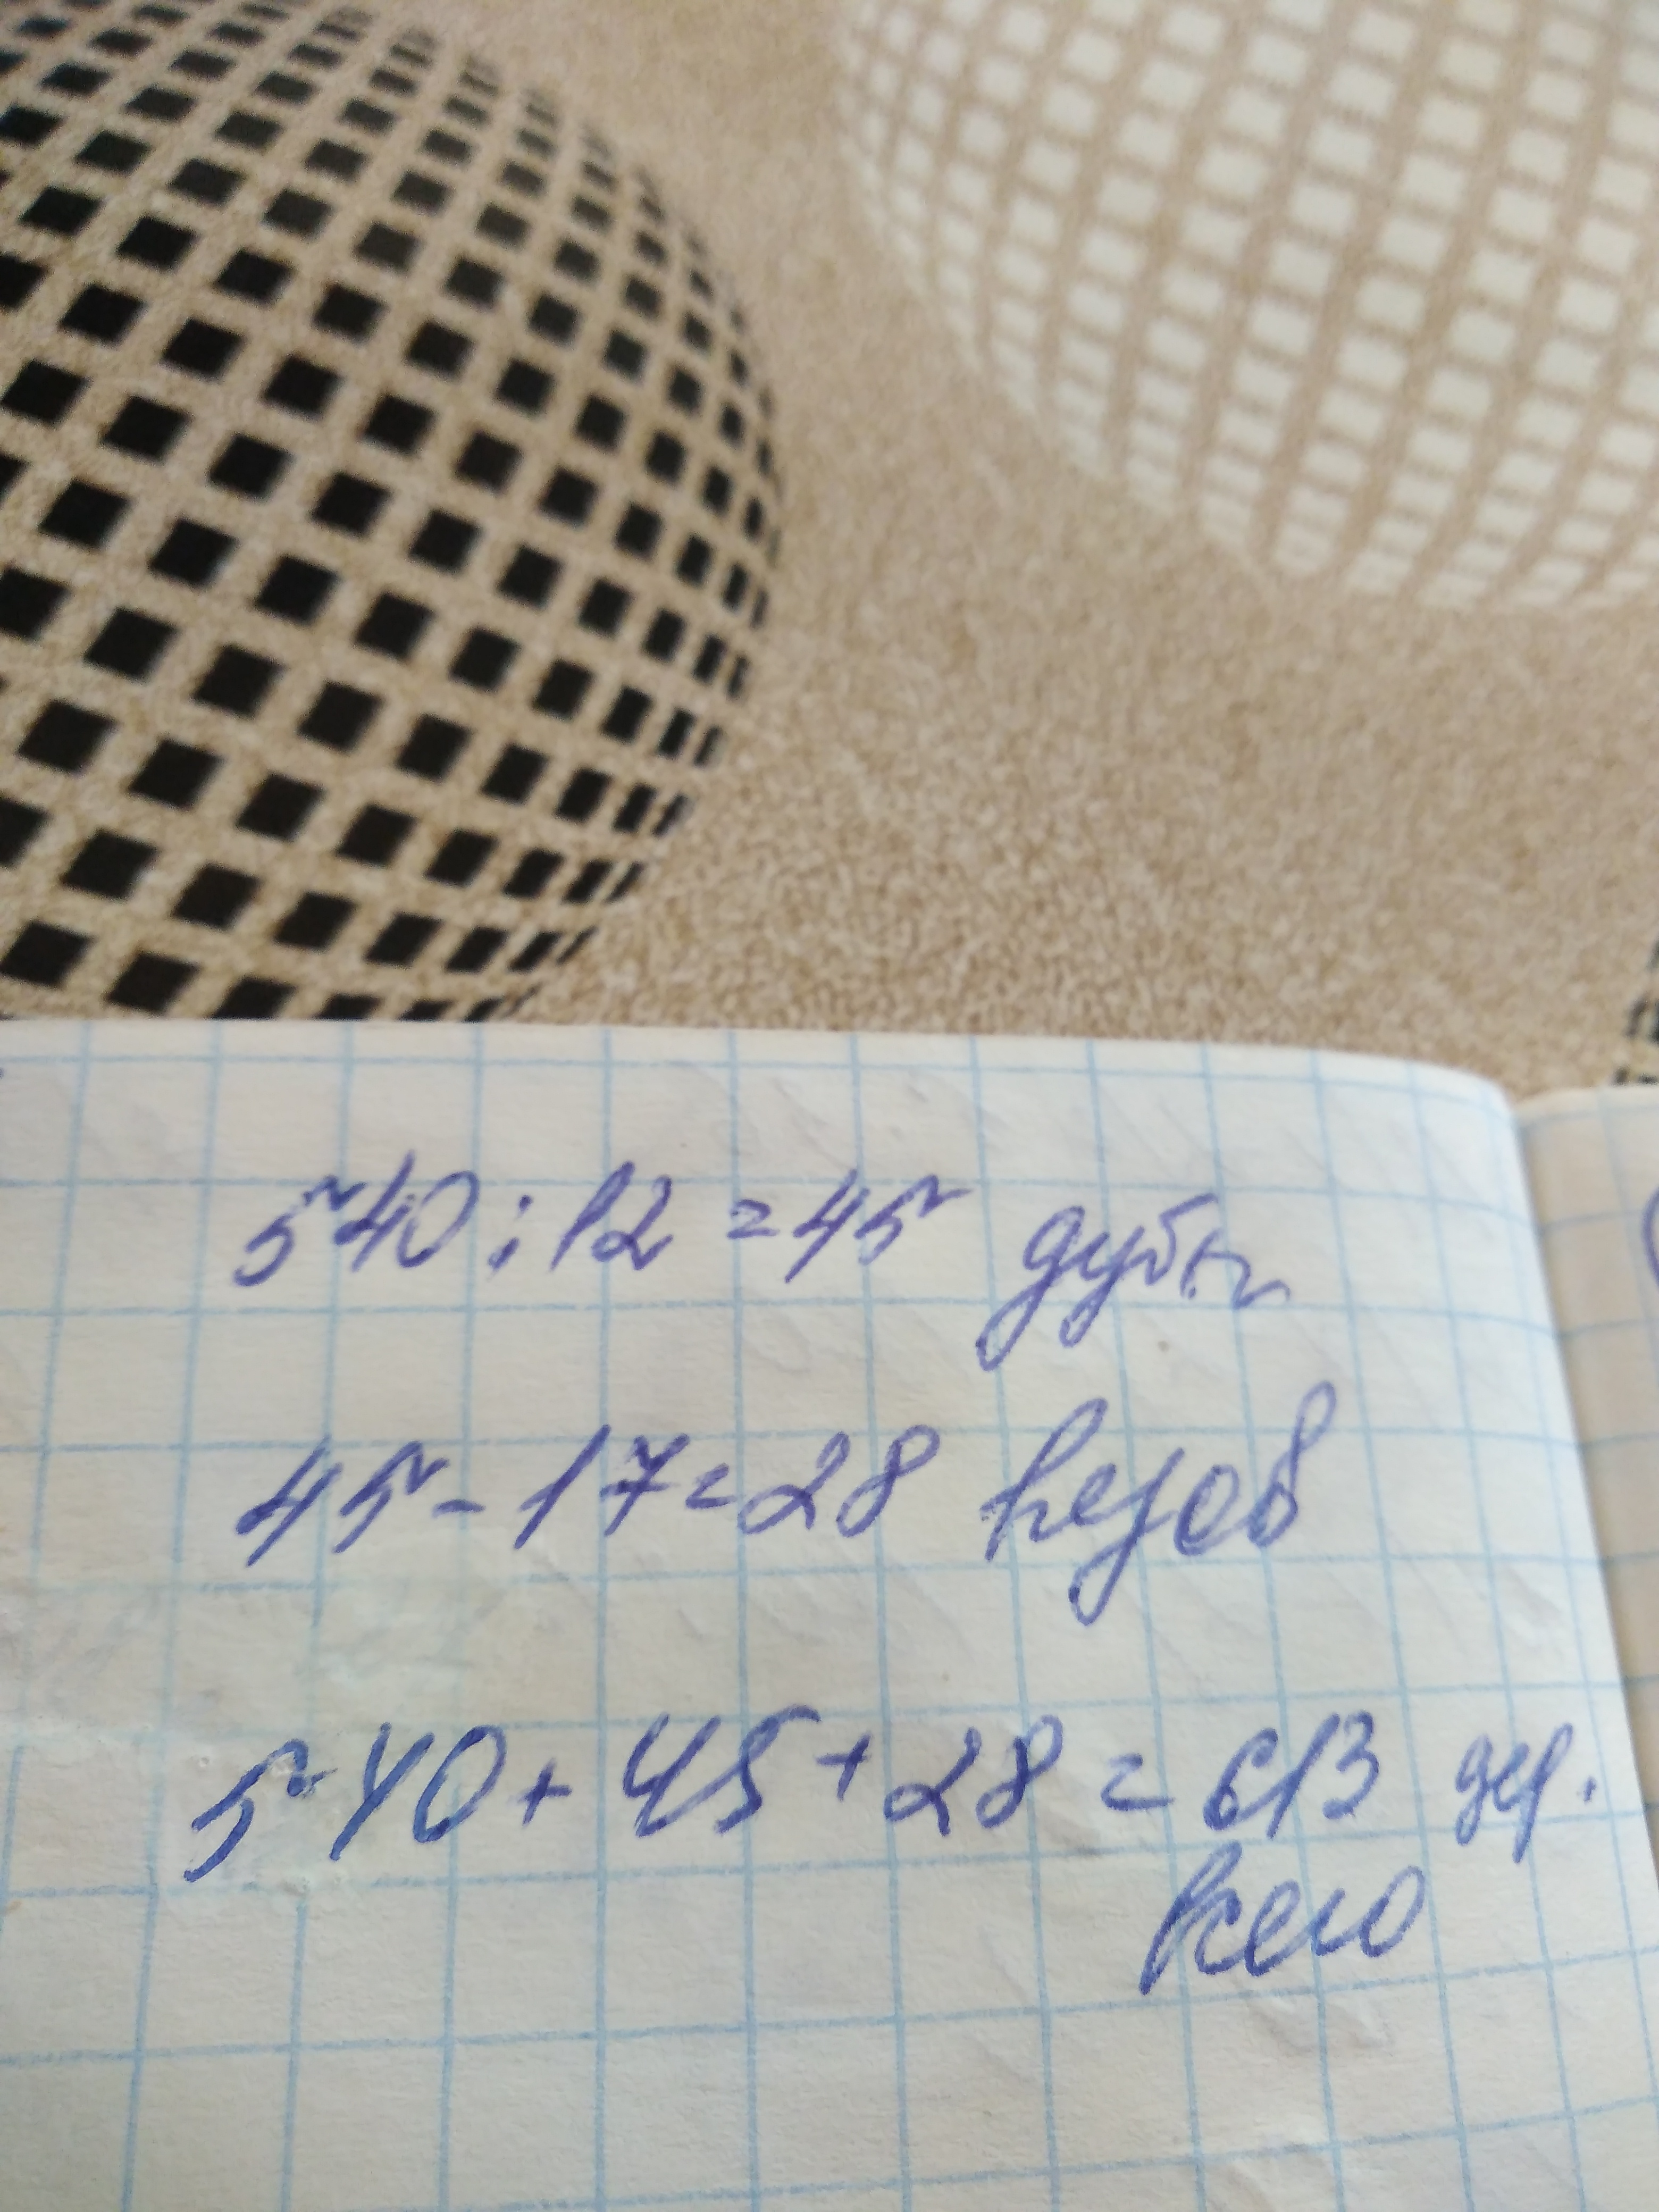 540 : 12 = 45 дубы
45 - 17 = 28 кедов
540 + 45 + 28 = 613 дер.
всего